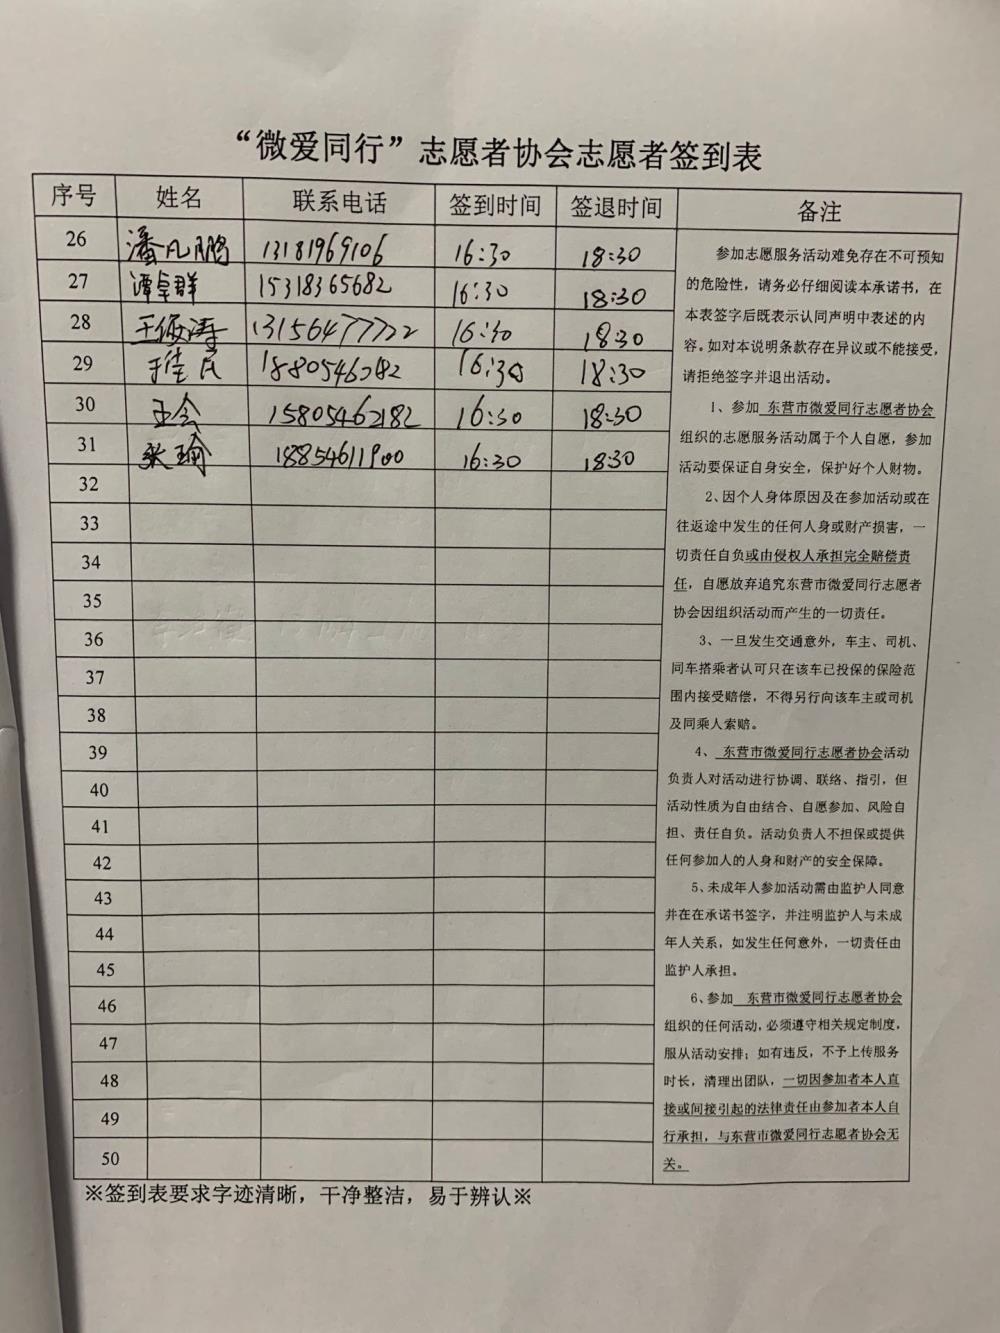 “微爱同行”志愿者协会志愿者签到表
序号 姓名 联系电话 签到时间 签退时间 备注
26 潘凡鹏 13181969106 16:30 18:30
27 谭卓群 15318365682 16:30 18:30
28 王俊涛 13156477722 16:30 18:30
29 于佳民 18805462182 16:30 18:30
30 王会 15805462182 16:30 18:30
31 张瑜 18854611900 16:30 18:30
32
33
34
35
36
37
38
39
40
41
42
43
44
45
46
47
48
49
50
参加志愿服务活动难免存在不可预知
的危险性，请务必仔细阅读本承诺书，在
本表签字后既表示认同声明中表述的内
容。如对本说明条款存在异议或不能接受，
请拒绝签字并退出活动。
1、参加 东营市微爱同行志愿者协会
组织的志愿服务活动属于个人自愿，参加
活动要保证自身安全，保护好个人财物。
2、因个人身体原因及在参加活动或在
往返途中发生的任何人身或财产损害，一
切责任自负或由侵权人承担完全赔偿责
任，自愿放弃追究东营市微爱同行志愿者
协会因组织活动而产生的一切责任。
3、一旦发生交通意外，车主、司机、
同车搭乘者认可只在该车已投保的保险范
围内接受赔偿，不得另行向该车主或司机
及同乘人索赔。
4、 东营市微爱同行志愿者协会活动
负责人对活动进行协调、联络、指引，但
活动性质为自由结合、自愿参加、风险自
担、责任自负。活动负责人不担保或提供
任何参加人的人身和财产的安全保障。
5、未成年人参加活动需由监护人同意
并在在承诺书签字，并注明监护人与未成
年人关系，如发生任何意外，一切责任由
监护人承担。
6、参加 东营市微爱同行志愿者协会
组织的任何活动，必须遵守相关规定制度，
服从活动安排；如有违反，不予上传服务
时长，清理出团队，一切因参加者本人直
接或间接引起的法律责任由参加者本人自
行承担，与东营市微爱同行志愿者协会无
关。
※签到表要求字迹清晰，干净整洁，易于辨认※